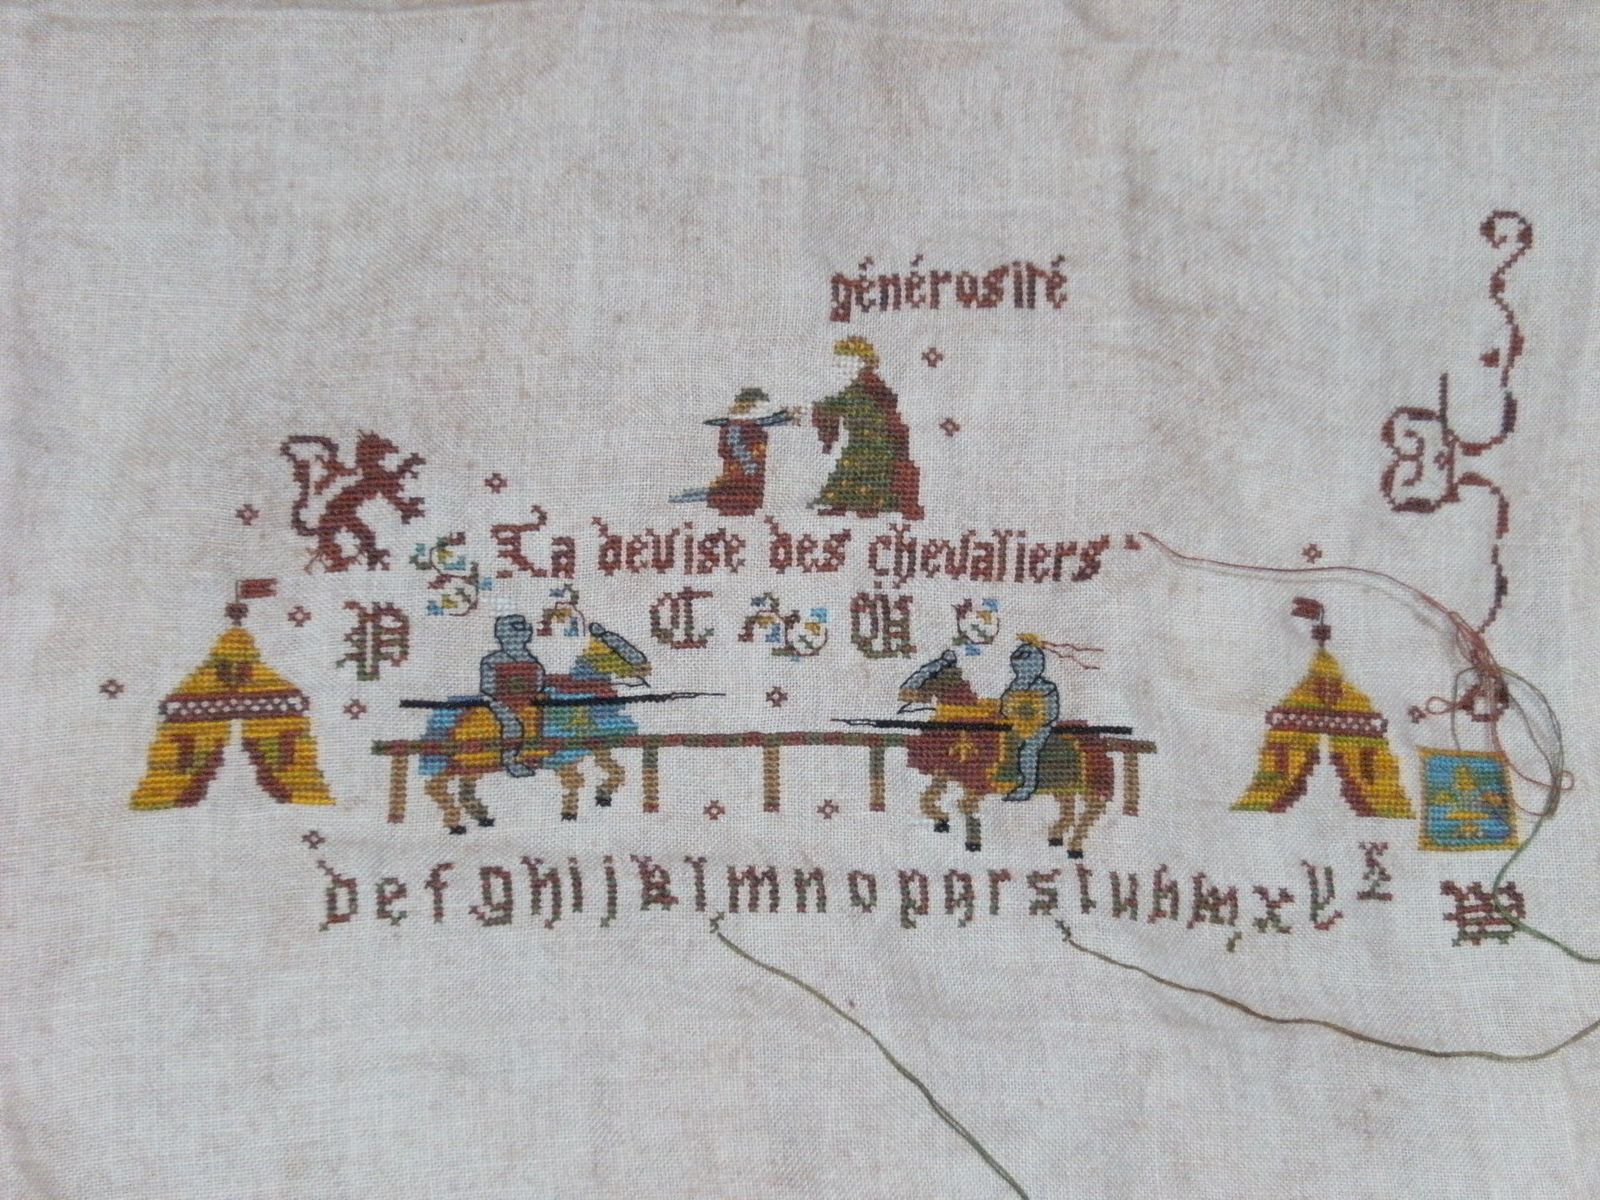 générosité
La devise des chevaliers
P A C A M
d e f g h i j k l m n o p q r s t u v w x y z